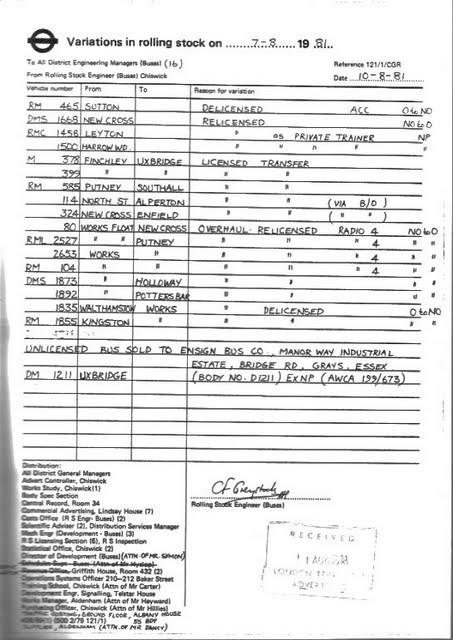 Variations in rolling stock on 7-8 19 81
To All District Engineering Managers (Buses) (16) Reference 121/1/CGR
From Rolling Stock Engineer (Buses) Chiswick Date 10-8-81
Vehicle number From To Reason for variation
RM 465 SUTTON DELICENSED ACC O to NO
DMS 1668 NEW CROSS RELICENSED NO to O
RMC 1458 LEYTON " as PRIVATE TRAINER NP
1500 HARROW WD. " " " " "
M 378 FINCHLEY UXBRIDGE LICENSED TRANSFER
399 " " " "
RM 585 PUTNEY SOUTHALL " "
114 NORTH ST. ALPERTON " " (VIA B/D)
324 NEW CROSS ENFIELD " " ( " " )
80 WORKS FLOAT NEW CROSS OVERHAUL- RELICENSED RADIO 4 NO to O
RML 2527 " " PUTNEY " " " 4 " "
2653 WORKS " " " " 4 " "
RM 104 " " " " " 4 " "
DMS 1873 " HOLLOWAY " " " "
1892 " POTTERS BAR " " " "
1835 WALTHAMSTOW WORKS " DELICENSED O to NO
RM 1855 KINGSTON " " " " "
UNLICENSED BUS SOLD TO ENSIGN BUS CO., MANOR WAY INDUSTRIAL
ESTATE, BRIDGE RD, GRAYS, ESSEX
DM 1211 UXBRIDGE (BODY NO. D1211) EX NP (AWCA 199/673)
Distribution:
All District General Managers
Advert Controller, Chiswick
Works Study, Chiswick (1)
Body Spec Section
Central Record, Room 34
Commercial Advertising, Lindsay House (7)
Costs Office (R S Engr- Buses) (2)
Scientific Adviser (2), Distribution Services Manager
Mech Engr (Development - Buses) (3)
R S Licensing Section (6), R S Inspection
Statistical Office, Chiswick (2)
Director of Development (Buses) (ATTN OF MR. SYMON)
Schedules Supt - Buses (Attn of Mr Hyslop)
Office, Griffith House, Room 432 (2)
Operations Systems Officer 210-212 Baker Street
Training School, Chiswick (Attn of Mr Carter)
Development Engr, Signalling, Telstar House
Works Manager, Aldenham (Attn of Mr Hayward)
Purchasing Officer, Chiswick (Attn of Mr Hillies)
GROUND FLOOR, ALBANY HOUSE
(500 2/79 121/1) 55 BDY
ALDENHAM (ATTN. OF MR. DANCY)
Rolling Stock Engineer (Buses)
RECEIVED
11 AUG 1981
LONDON
ADVERT